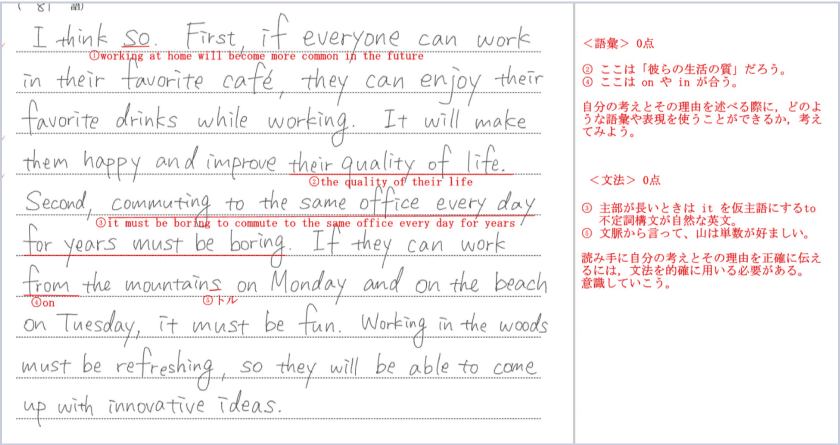 I think so. First, if everyone can work
①working at home will become more common in the future
in their favorite café, they can enjoy their
favorite drinks while working. It will make
them happy and improve their quality of life.
②the quality of their life
Second, commuting to the same office every day
③it must be boring to commute to the same office every day for years
for years must be boring. If they can work
from the mountains on Monday and on the beach
④on
⑤トル
on Tuesday, it must be fun. Working in the woods
must be refreshing, so they will be able to come
up with innovative ideas.
<語彙> 0点
② ここは「彼らの生活の質」だろう。
④ ここは on や in が合う。
自分の考えとその理由を述べる際に,どのよ
うな語彙や表現を使うことができるか,考え
てみよう。
<文法> 0点
③ 主部が長いときは it を仮主語にするto
不定詞構文が自然な英文。
⑤ 文脈から言って,山は単数が好ましい。
読み手に自分の考えとその理由を正確に伝え
るには,文法を的確に用いる必要がある。
意識していこう。